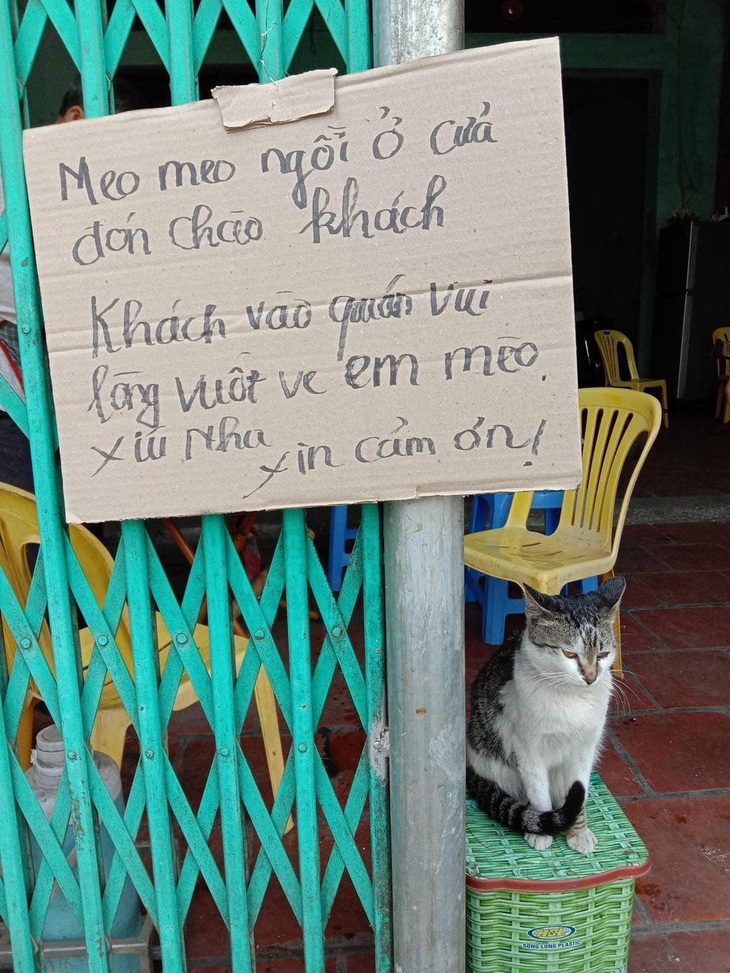 Meo meo ngồi ở cửa
đón chào khách
Khách vào quán vui
lòng vuốt ve em mèo.
xíu Nha xin cảm ơn!
SONG LONG PLASTIC